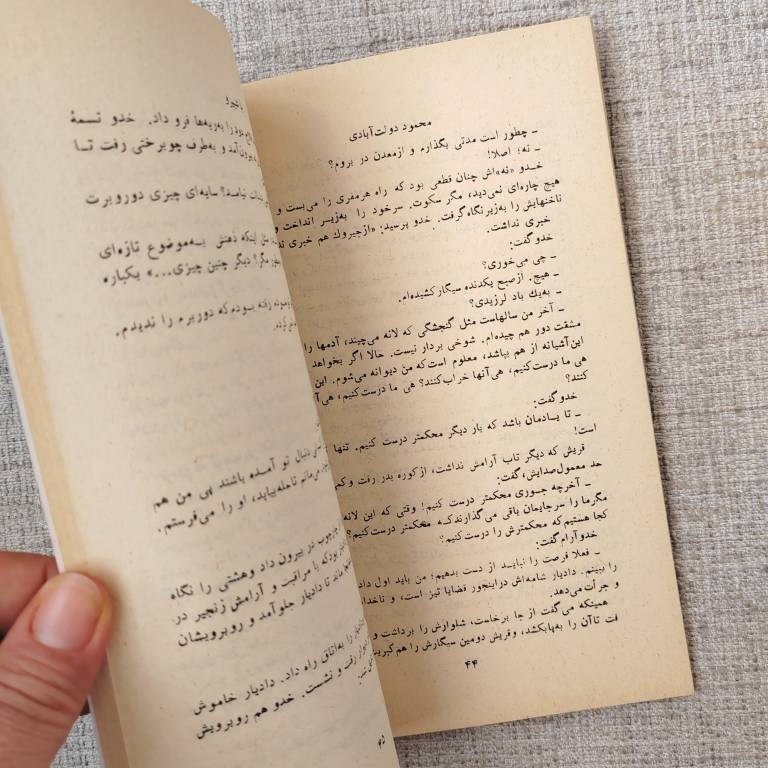 محمود دولت‌آبادی
ـ چطور است مدتی بگذارم و ازمعدن در بروم؟
ـ نه؛ اصلا!
خدو «نه»اش چنان قطعی بود که راه هرمفری را می‌بست و
هیچ چاره‌ای نمی‌دید، مگر سکوت. سرخود را به‌زیر انداخت و
ناخنهایش را به‌زیر نگاه گرفت. خدو پرسید: «ازجیروك هم خبری
خبری نداشت.
خدوگفت:
ـ چی می‌خوری؟
ـ هیچ. ازصبح یکدنده سیگارکشیده‌ام.
ـ به‌یك باد لرزیدی؟
ـ آخر من سالهاست مثل گنجشکی که لانه می‌چیند، آدمها را
مشقت دور هم چیده‌ام. شوخی بردار نیست. حالا اگر بخواهد
این‌آشیانه از هم بپاشد، معلوم است‌که من دیوانه می‌شوم. این
هی ما درست‌کنیم، هی‌آنها خراب‌کنند؟ هی ما درست‌کنیم، هی
کنند؟
خدوگفت:
ـ تا یادمان باشد که بار دیگر محکمتر درست کنیم. تنها
است!
قریش که دیگر تاب آرامش نداشت، ازکوره بدر رفت و
حد معمول‌صدایش،گفت:
ـ آخرچه جوری محکمتر درست کنیم! وقتی که این لانه
مگرما را سرجایمان باقی می‌گذارندکه محکمتر درست‌کنیم؟
کجا هستیم‌که محکمترش را درست‌کنیم؟
خدوآرام‌گفت:
ـ فعلا فرصت را نباید از دست بدهیم؛ من باید اول
را ببینم. دادیار شامه‌اش دراینجور قضایا تیز است، و
و جرأت می‌دهد.
همینکه می‌گفت از جا برخاست، شلوارش را برداشت و
فت تاآن را به‌پابکشد، وقریش دومین سیگارش را هم
۴۴
را به‌زیه‌ها فرو داد. خدو تسمهٔ
و به‌طرف چوبرختی رفت تا
سایه‌ای چیزی دوروبرت
مثل اینکه ذهنش به‌موضوع تازه‌ای
مگر؟ دیگر چنین چیزی...» یکباره
رفته بودم‌که دوربرم را ندیدم.
دنبال تو آمده باشند پی من هم
می‌مانم تاحله‌بیاید، او را می‌فرستم.
در بیرون داد وهشتی را نگاه
بودکه با مراقبت و آرامش زنجیر در
ماند تا دادیار جلوآمد و روبرویشان
را به‌اتاق راه داد. دادیار خاموش
رفت و نشست. خدو هم روبرویش
۴۵